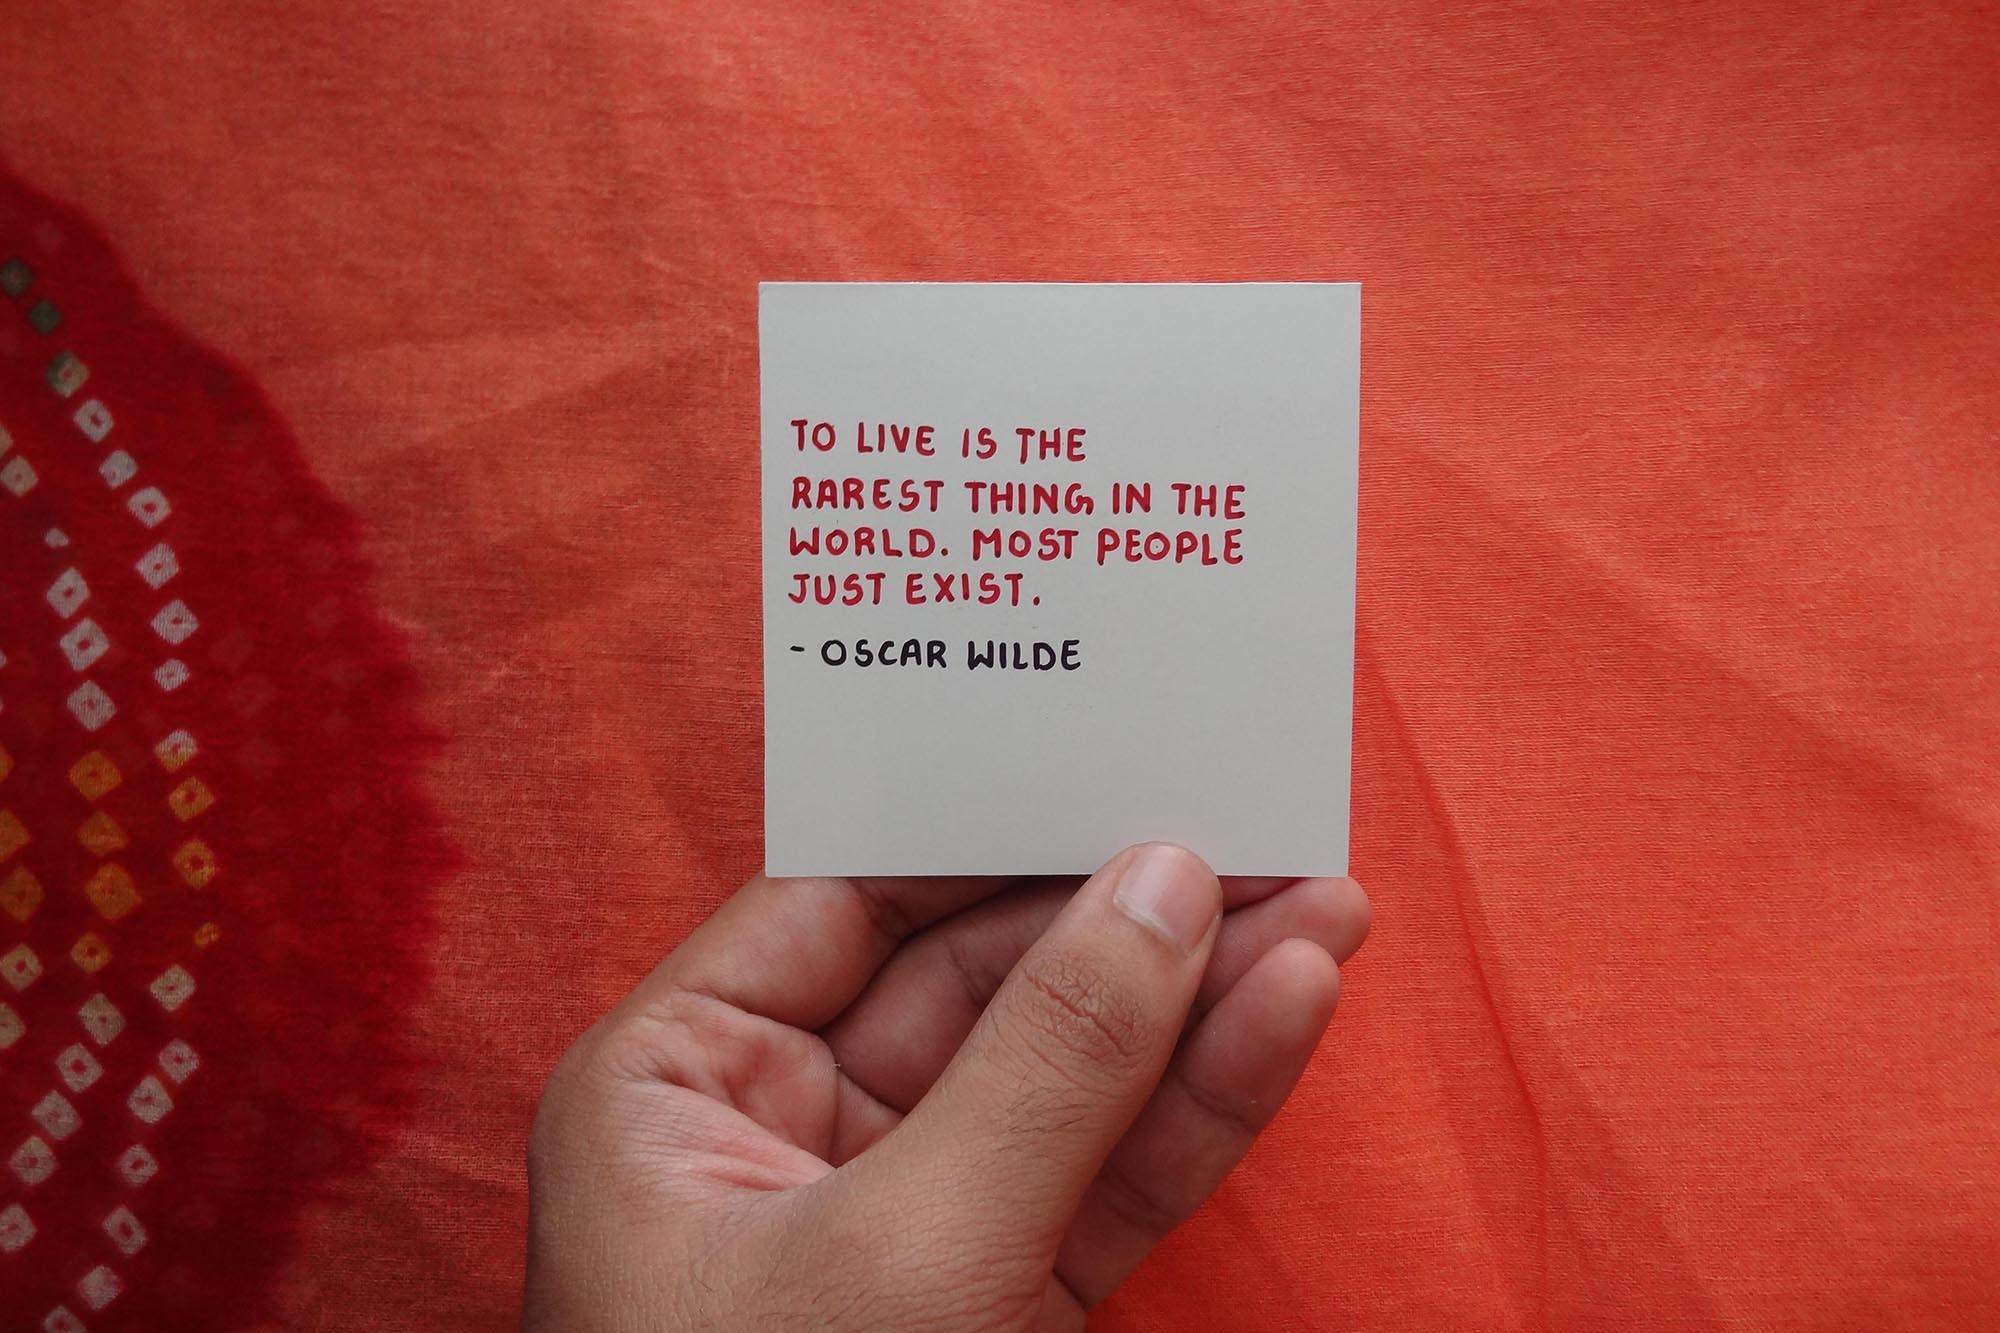 TO LIVE IS THE
RAREST THING IN THE
WORLD. MOST PEOPLE
JUST EXIST.
- OSCAR WILDE